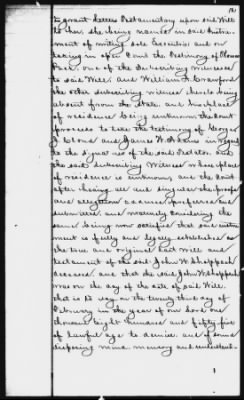 to grant letters Testamentary upon said Will
to her, she being named in said instru-
ment of writing sole Executrix and on
taking in open Court the Testimony of
one of the subscribing witnesses
to said Will, and William Crawford
the other subscribing witness thereto being
absent from the State, and his place
of residence being unknown the Court
proceeds to take the testimony of George
and James W. in regard
to the signatures of the said testator and
the said subscribing Witness whose place
of residence is unknown, and the Court
after hearing all and singular the proofs
and allegations
submitted and maturely considering the
same being now satisfied that said instru-
ment is fully and legally established
the true and original last Will and
testament of the said John W.
deceased and that the said John W.
was on the day of the date of said Will
that is to say on the twenty third day of
February in the year of our Lord one
thousand eight hundred and fifty five
of lawful age to devise and of sound
disposing mind memory and understand-